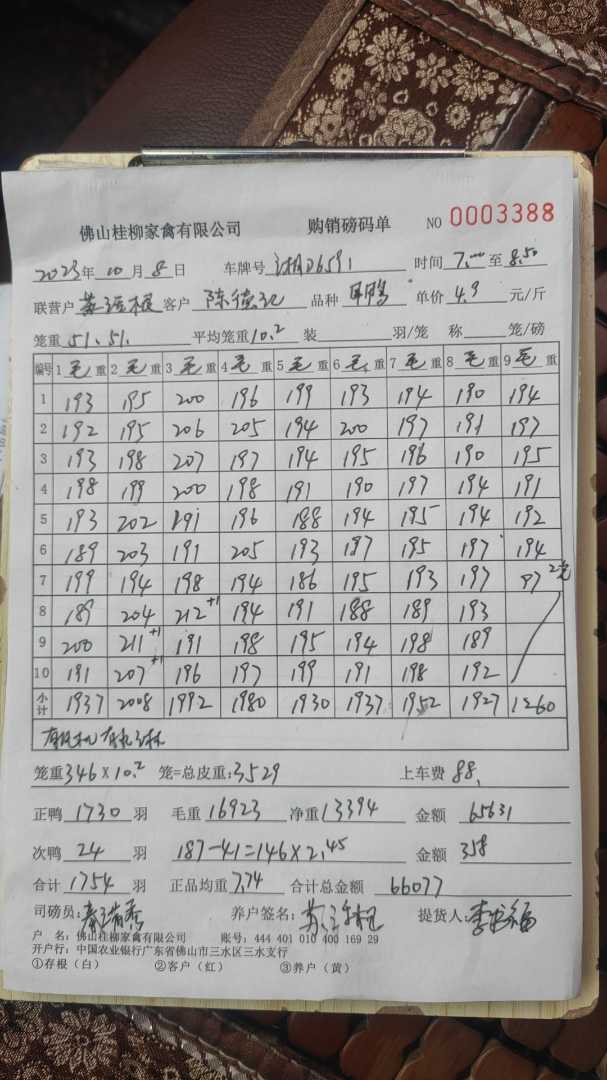 佛山桂柳家禽有限公司 购销磅码单 NO 0003388
2023年 10 月 8 日 车牌号 湘D6591 时间 7.00 至 8.50
联营户 客户 陈德记 品种 单价 4.9 元/斤
笼重 51、51、 平均笼重 10.2 装 羽/笼 称 笼/磅
编号 1 毛 重 2 毛 重 3 毛 重 4 毛 重 5 毛 重 6 毛 重 7 毛 重 8 毛 重 9 毛 重
1 193 195 200 196 199 193 194 190 194
2 192 195 206 205 194 200 197 191 197
3 193 198 207 197 194 195 196 190 195
4 198 199 200 198 191 190 197 194 191
5 193 202 191 196 188 194 195 194 192
6 189 203 191 205 193 197 195 197 194
7 199 194 198 194 186 195 193 197 97 2笼
8 189 204 212+1 194 191 188 189 193
9 200 211+1 191 198 195 194 198 189
10 191 207+1 196 197 199 191 198 192
小计 1937 2008 1992 1980 1930 1937 1952 1927 1260
笼重 346×10.2 笼=总皮重: 3529 上车费 88.
正鸭 1730 羽 毛重 16923 净重 13394 金额 65631
次鸭 24 羽 187-41=146×2.45 金额 358
合计 1754 羽 正品均重 7.74 合计总金额 66077
司磅员: 养户签名: 提货人:
户 名: 佛山桂柳家禽有限公司 账号: 444 401 010 400 169 29
开户行: 中国农业银行广东省佛山市三水区三水支行
①存根（白） ②客户（红） ③养户（黄）